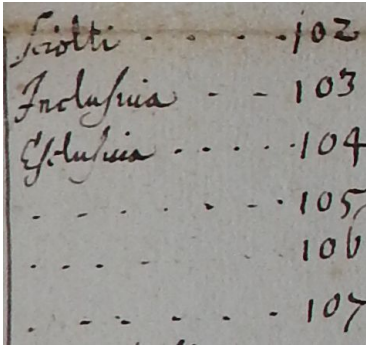 Sciolti - - - - 102
Inclusiva - - 103
Esclusiva - - - - - 104
- - - - - - 105
- - - - 106
- - - - - - 107